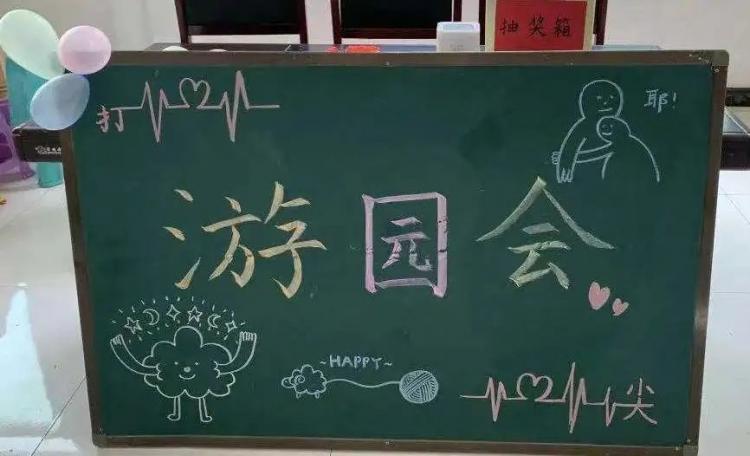 抽奖箱
打
耶!
游园会
~HAPPY~
尖